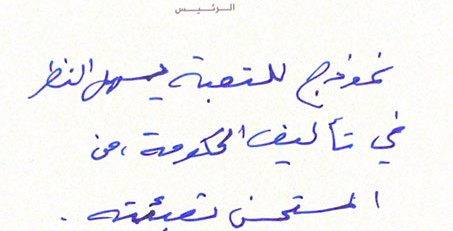 الرئيس
نموذج للتعبئة يسهل النظر
في تأليف الحكومة، من
المستحسن تعبئته.